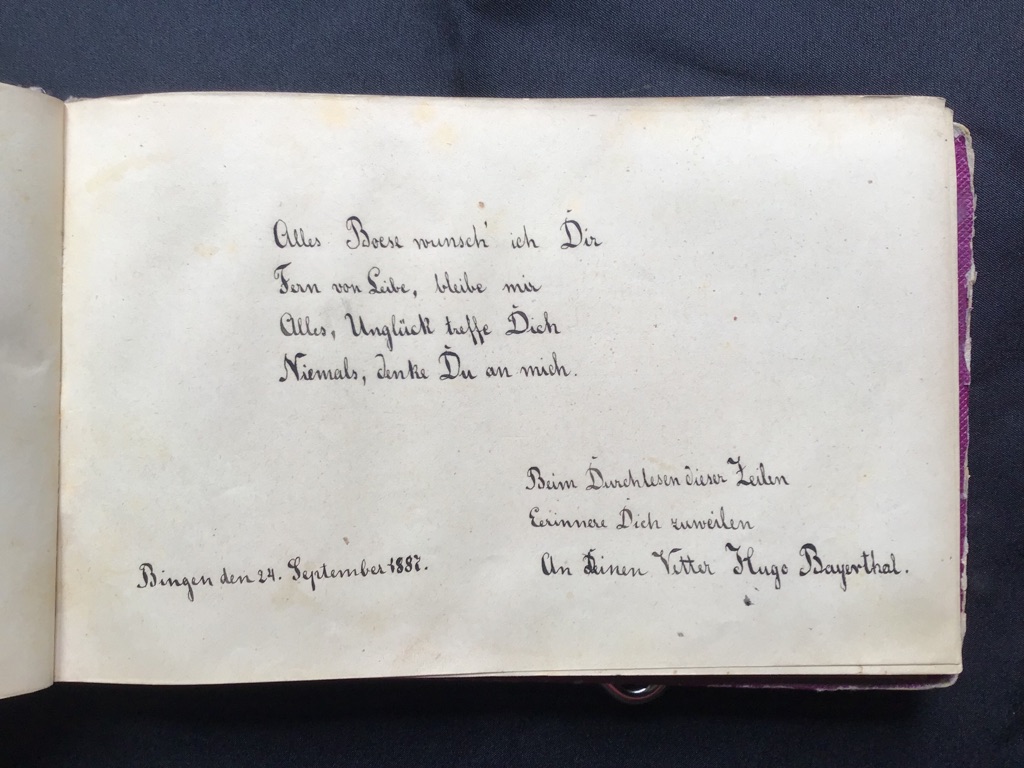 Alles Boese wunsch' ich Dir
Fern von Leibe, bleibe mir
Alles, Unglück treffe Dich
Niemals, denke Du an mich.
Beim Durchlesen dieser Zeilen
Eerinnere Dich zuweilen
An Deinen Vetter Hugo Bayerthal.
Bingen den 24. September 1887.